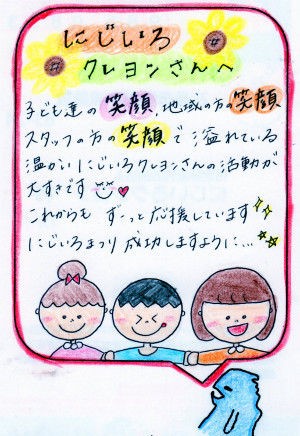 にじいろ
クレヨンさんへ
子ども達の笑顔 地域の方の笑顔
スタッフの方の笑顔で溢れている
温かいにじいろクレヨンさんの活動が
大すきです
これからも ずーっと応援しています
にじいろまつり成功しますように…